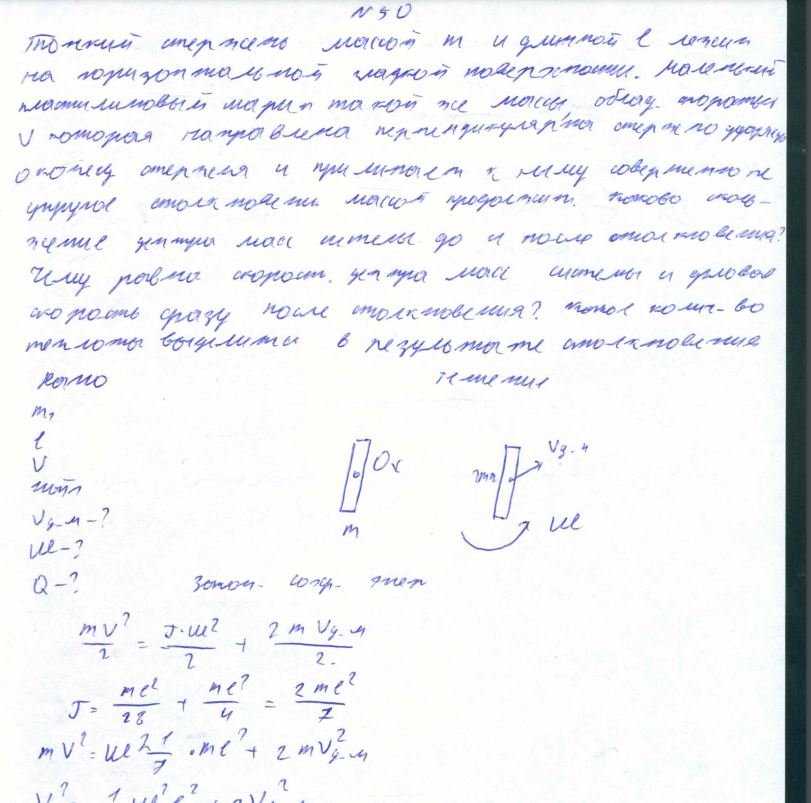 N 50
Тонкий стержень массой m и длинной l лежит
на горизонтальной гладкой поверхности. маленький
пластилиновый шарик такой же массы облад.
V которая направлена перпендикулярна стержню
о конец стержня и прилипает к нему совершенно не
упругое столкновени. массой продолжит. каково
жение центра масс системы до и после столкновения?
Чему равна скорост. центра масс системы и угловая
скорость сразу после столкновения? какое колич-во
теплоты выделится в результате столкновение
Дано решение
m,
l
V
Vц-м-?
Ul-?
Q-?
m
Vц-м
2m
Ul
закон- сохр- энер
mV²/2 = J·Ul²/2 + 2mVц-м/2
J = ml²/28 + ml²/4 = 2ml²/7
mV² = Ul² 1/7 · ml² + 2mV²ц-м